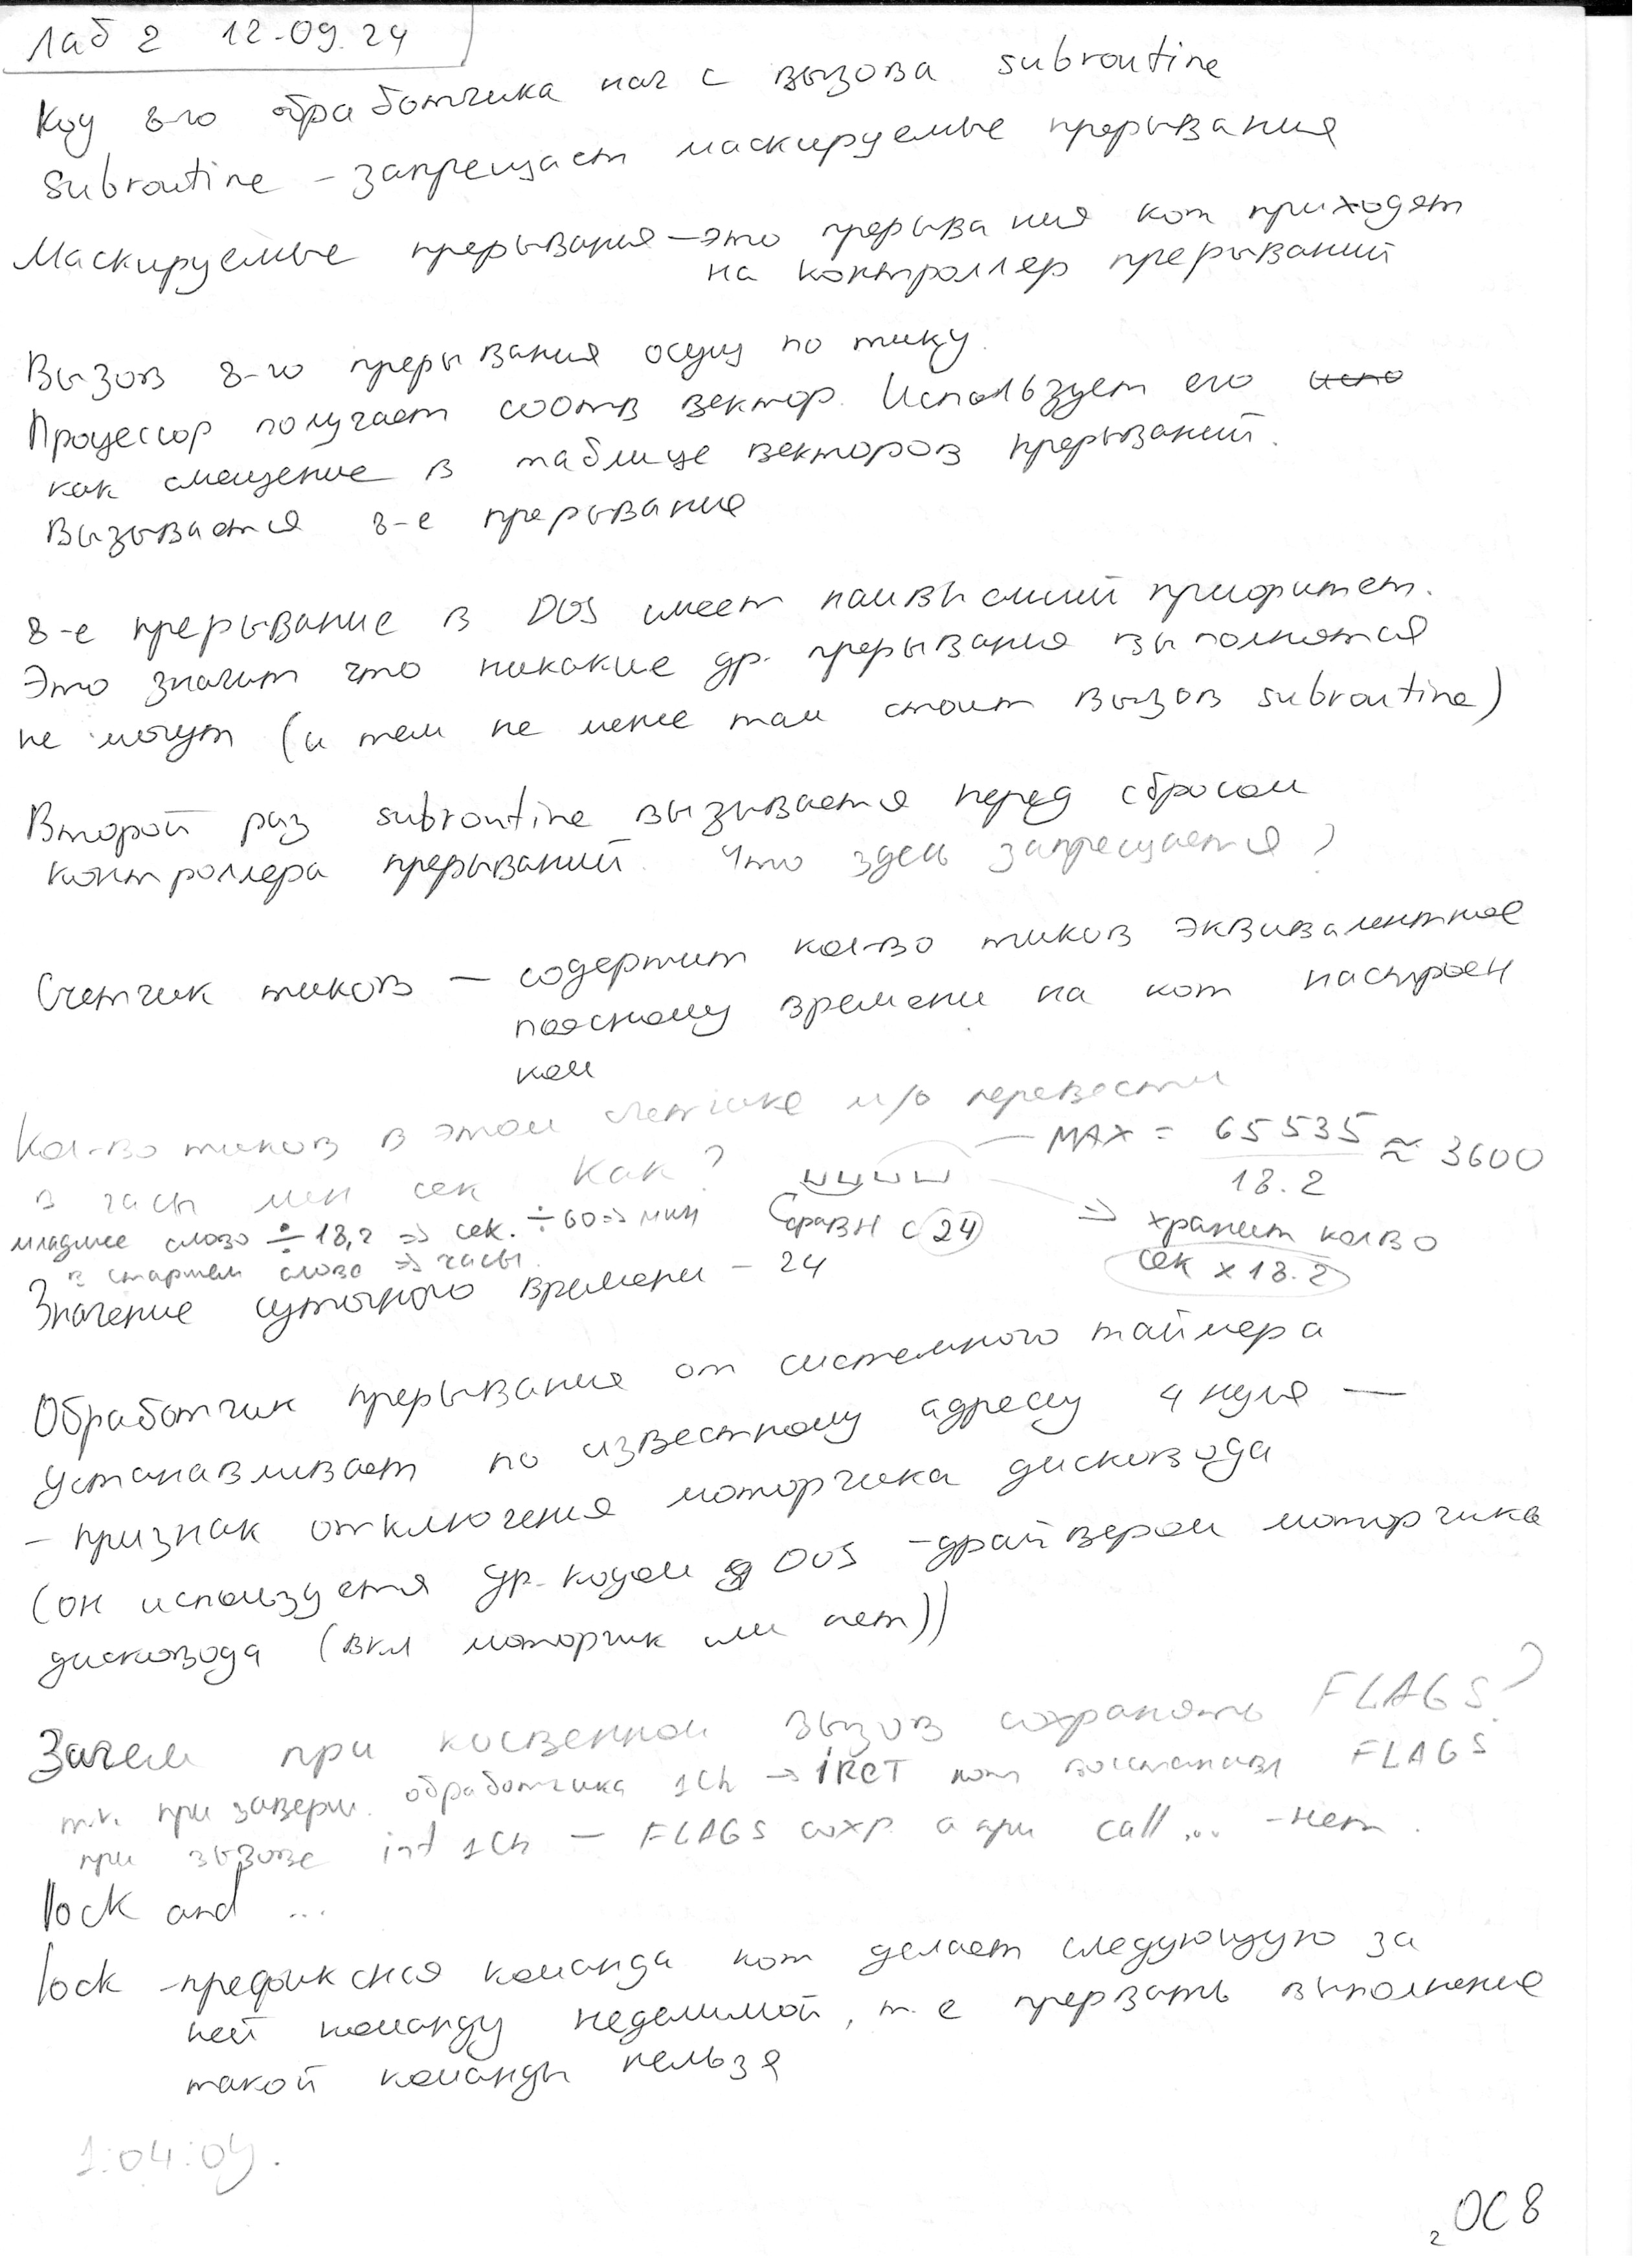 Лаб 2 12.09.24
Код 8-го обработчика нач с вызова subroutine
subroutine – запрещает маскируемые прерывания
Маскируемые прерывания – это прерывания кот приходят
на контроллер прерываний
Вызов 8-го прерывания осущ по тику.
Процессор получает соотв вектор. Использует его
как смещение в таблице векторов прерываний.
Вызывается 8-е прерывание
8-е прерывание в DOS имеет наивысший приоритет.
Это значит что никакие др. прерывания выполнятся
не могут (и тем не менее там стоит вызов subroutine)
Второй раз subroutine вызывается перед сбросом
контроллера прерываний. Что здесь запрещается?
Счетчик тиков — содержит кол-во тиков эквивалентное
поясному времени на кот настроен
ком
Кол-во тиков в этом счетчике м/о перевести
в часы мин сек Как?
— MAX = 65535 / 18.2 ≈ 3600
младшее слово ÷ 18,2 => сек. ÷ 60 => мин
сравн с 24
=> хранит колво
сек x 18.2
в старшем слове => часы.
Значение суточного времени – 24
Обработчик прерывания от системного таймера
устанавливает по известному адресу 4 нуля —
– признак отключения моторчика дисковода
(он используется др. кодом в DOS – драйвером моторчика
дисковода (вкл моторчик или нет))
Зачем при косвенном вызов сохранять FLAGS?
т.к. при заверш. обработчика 1Ch -> IRET кот восстанавл FLAGS
при вызове int 1Ch — FLAGS сохр а при call ... – нет.
lock and ...
lock – префиксная команда кот делает следующую за
ней команду неделимой, т.е прервать выполнение
такой команды нельзя
1:04:04.
2 ОС 8